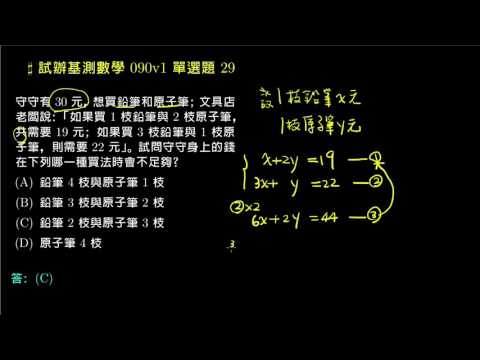 ♯ 試辦基測數學 090v1 單選題 29
守守有 30 元，想買鉛筆和原子筆；文具店
老闆說：「如果買 1 枝鉛筆與 2 枝原子筆，
共需要 19 元；如果買 3 枝鉛筆與 1 枝原
子筆，則需要 22 元」。試問守守身上的錢
在下列哪一種買法時會不足夠？
(A) 鉛筆 4 枝與原子筆 1 枝
(B) 鉛筆 3 枝與原子筆 2 枝
(C) 鉛筆 2 枝與原子筆 3 枝
(D) 原子筆 4 枝
答：(C)
設 1枝鉛筆x元
1枝原子筆y元
x+2y =19 —①
3x+ y =22 —②
②×2
6x+2y =44 —③